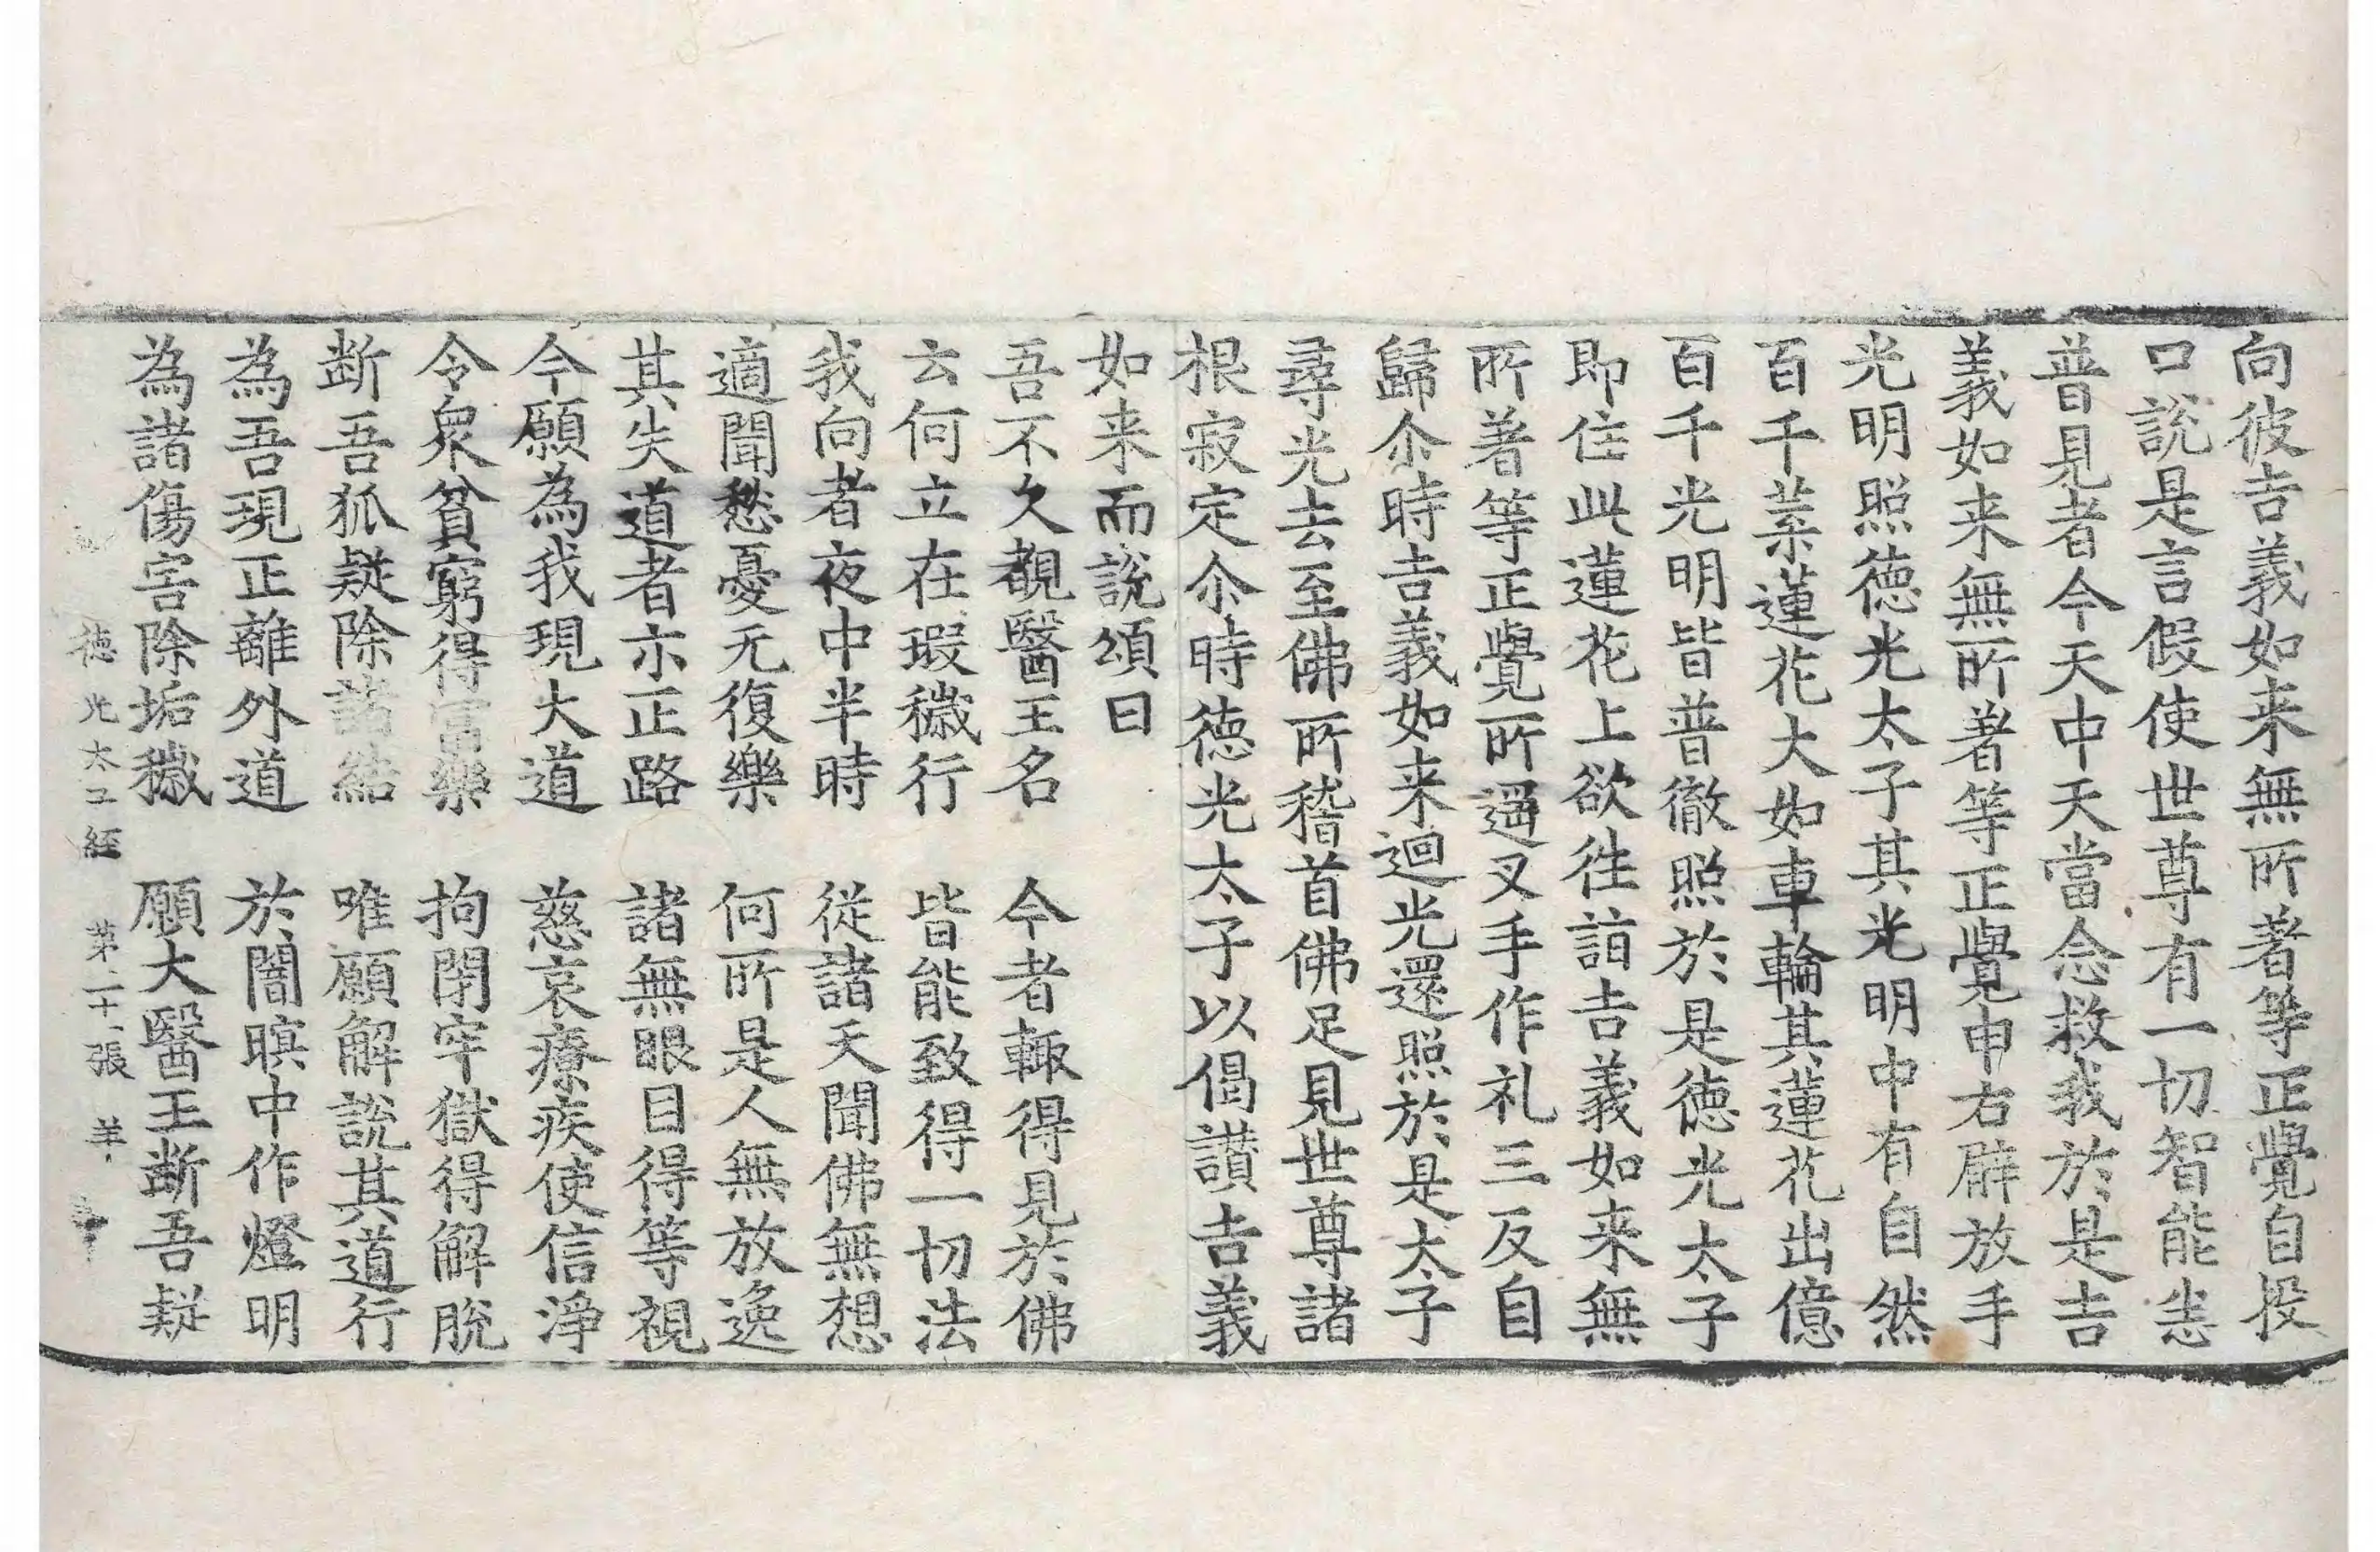 向彼吉義如来無所著等正覺自投
口說是言假使世尊有一切智能恙
普見者今天中天當念救我於是吉
義如来無所著等正覺申右臂放手
光明照德光太子其光明中有自然
百千葉蓮花大如車輪其蓮花出億
百千光明皆普徹照於是德光太子
即住此蓮花上欲往詣吉義如来無
所著等正覺所遥叉手作礼三反自
歸尒時吉義如来迴光還照於是太子
尋光去至佛所稽首佛足見世尊諸
根寂定尒時德光太子以偈讃吉義
如来而說頌曰
吾不久覩醫王名　今者輙得見於佛
云何立在瑕穢行　皆能致得一切法
我向者夜中半時　從諸天聞佛無想
適聞愁憂无復樂　何所是人無放逸
其失道者示正路　諸無眼目得等視
今願為我現大道　慈哀療疾使信淨
令衆貧窮得富樂　拘閉牢獄得解脫
断吾狐疑除諸結　唯願解說其道行
為吾現正離外道　於闇暝中作燈明
為諸傷害除垢穢　願大醫王断吾疑
德光太子經　第二十一張　羊